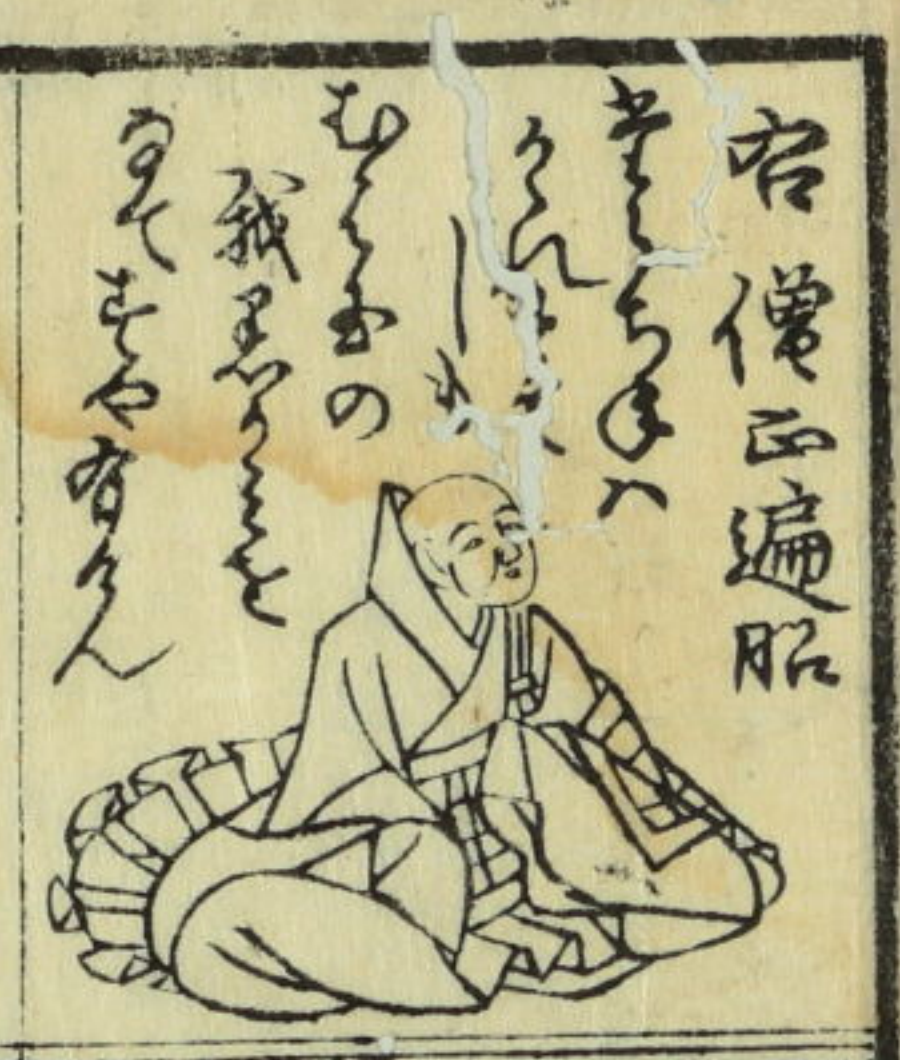 右 僧正遍昭
たらちねハ
かゝれとて
しも
むは玉の
我黒かみを
なてすや有けん